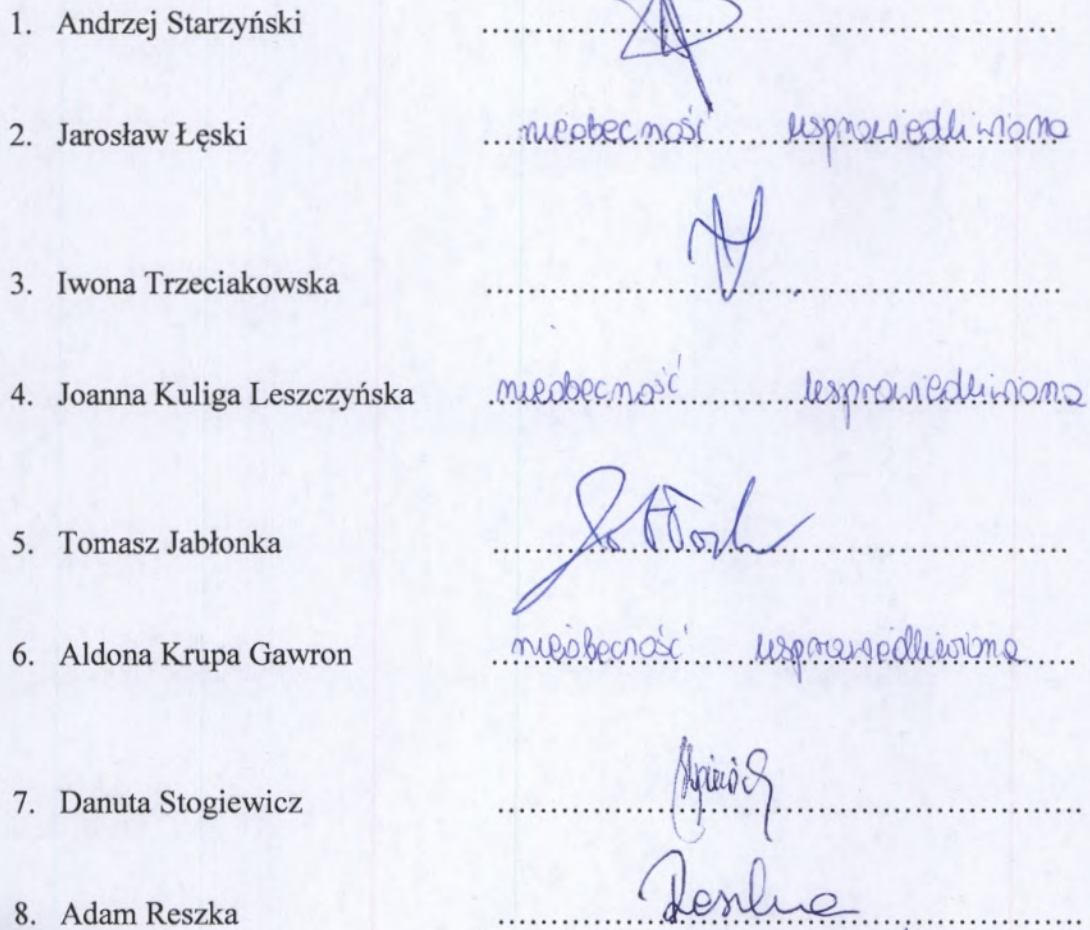 1. Andrzej Starzyński
2. Jarosław Łęski nieobecność usprawiedliwiona
3. Iwona Trzeciakowska
4. Joanna Kuliga Leszczyńska nieobecność usprawiedliwiona
5. Tomasz Jabłonka
6. Aldona Krupa Gawron nieobecność usprawiedliwiona
7. Danuta Stogiewicz
8. Adam Reszka Reszka